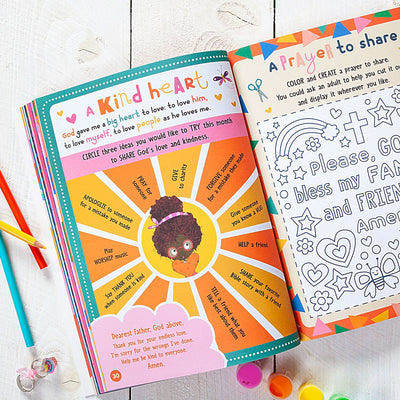 A KIND HEART
God gave me a big heart to love: to love him,
to love myself, to love people as he loves me.
CIRCLE three ideas you would like to TRY this month
to SHARE God's love and kindness.
APOLOGIZE to someone
for a mistake you made
PRAY for
someone
GIVE
to charity
FORGIVE someone
for a mistake they made
Give someone
you know a HUG
HELP a friend
SHARE your favorite
Bible story with a friend
TELL a friend what
you like best about them
Say THANK YOU
when someone is kind
Play
WORSHIP music
Dearest Father, God above,
Thank you for your endless love.
I'm sorry for the wrongs I've done.
Help me be kind to everyone.
Amen.
30
A PRAYER to share
COLOR and CREATE a prayer to share.
You could ask an adult to help you cut it out
and display it wherever you like.
Please, GO
bless my FAM
and FRIEN
Amen